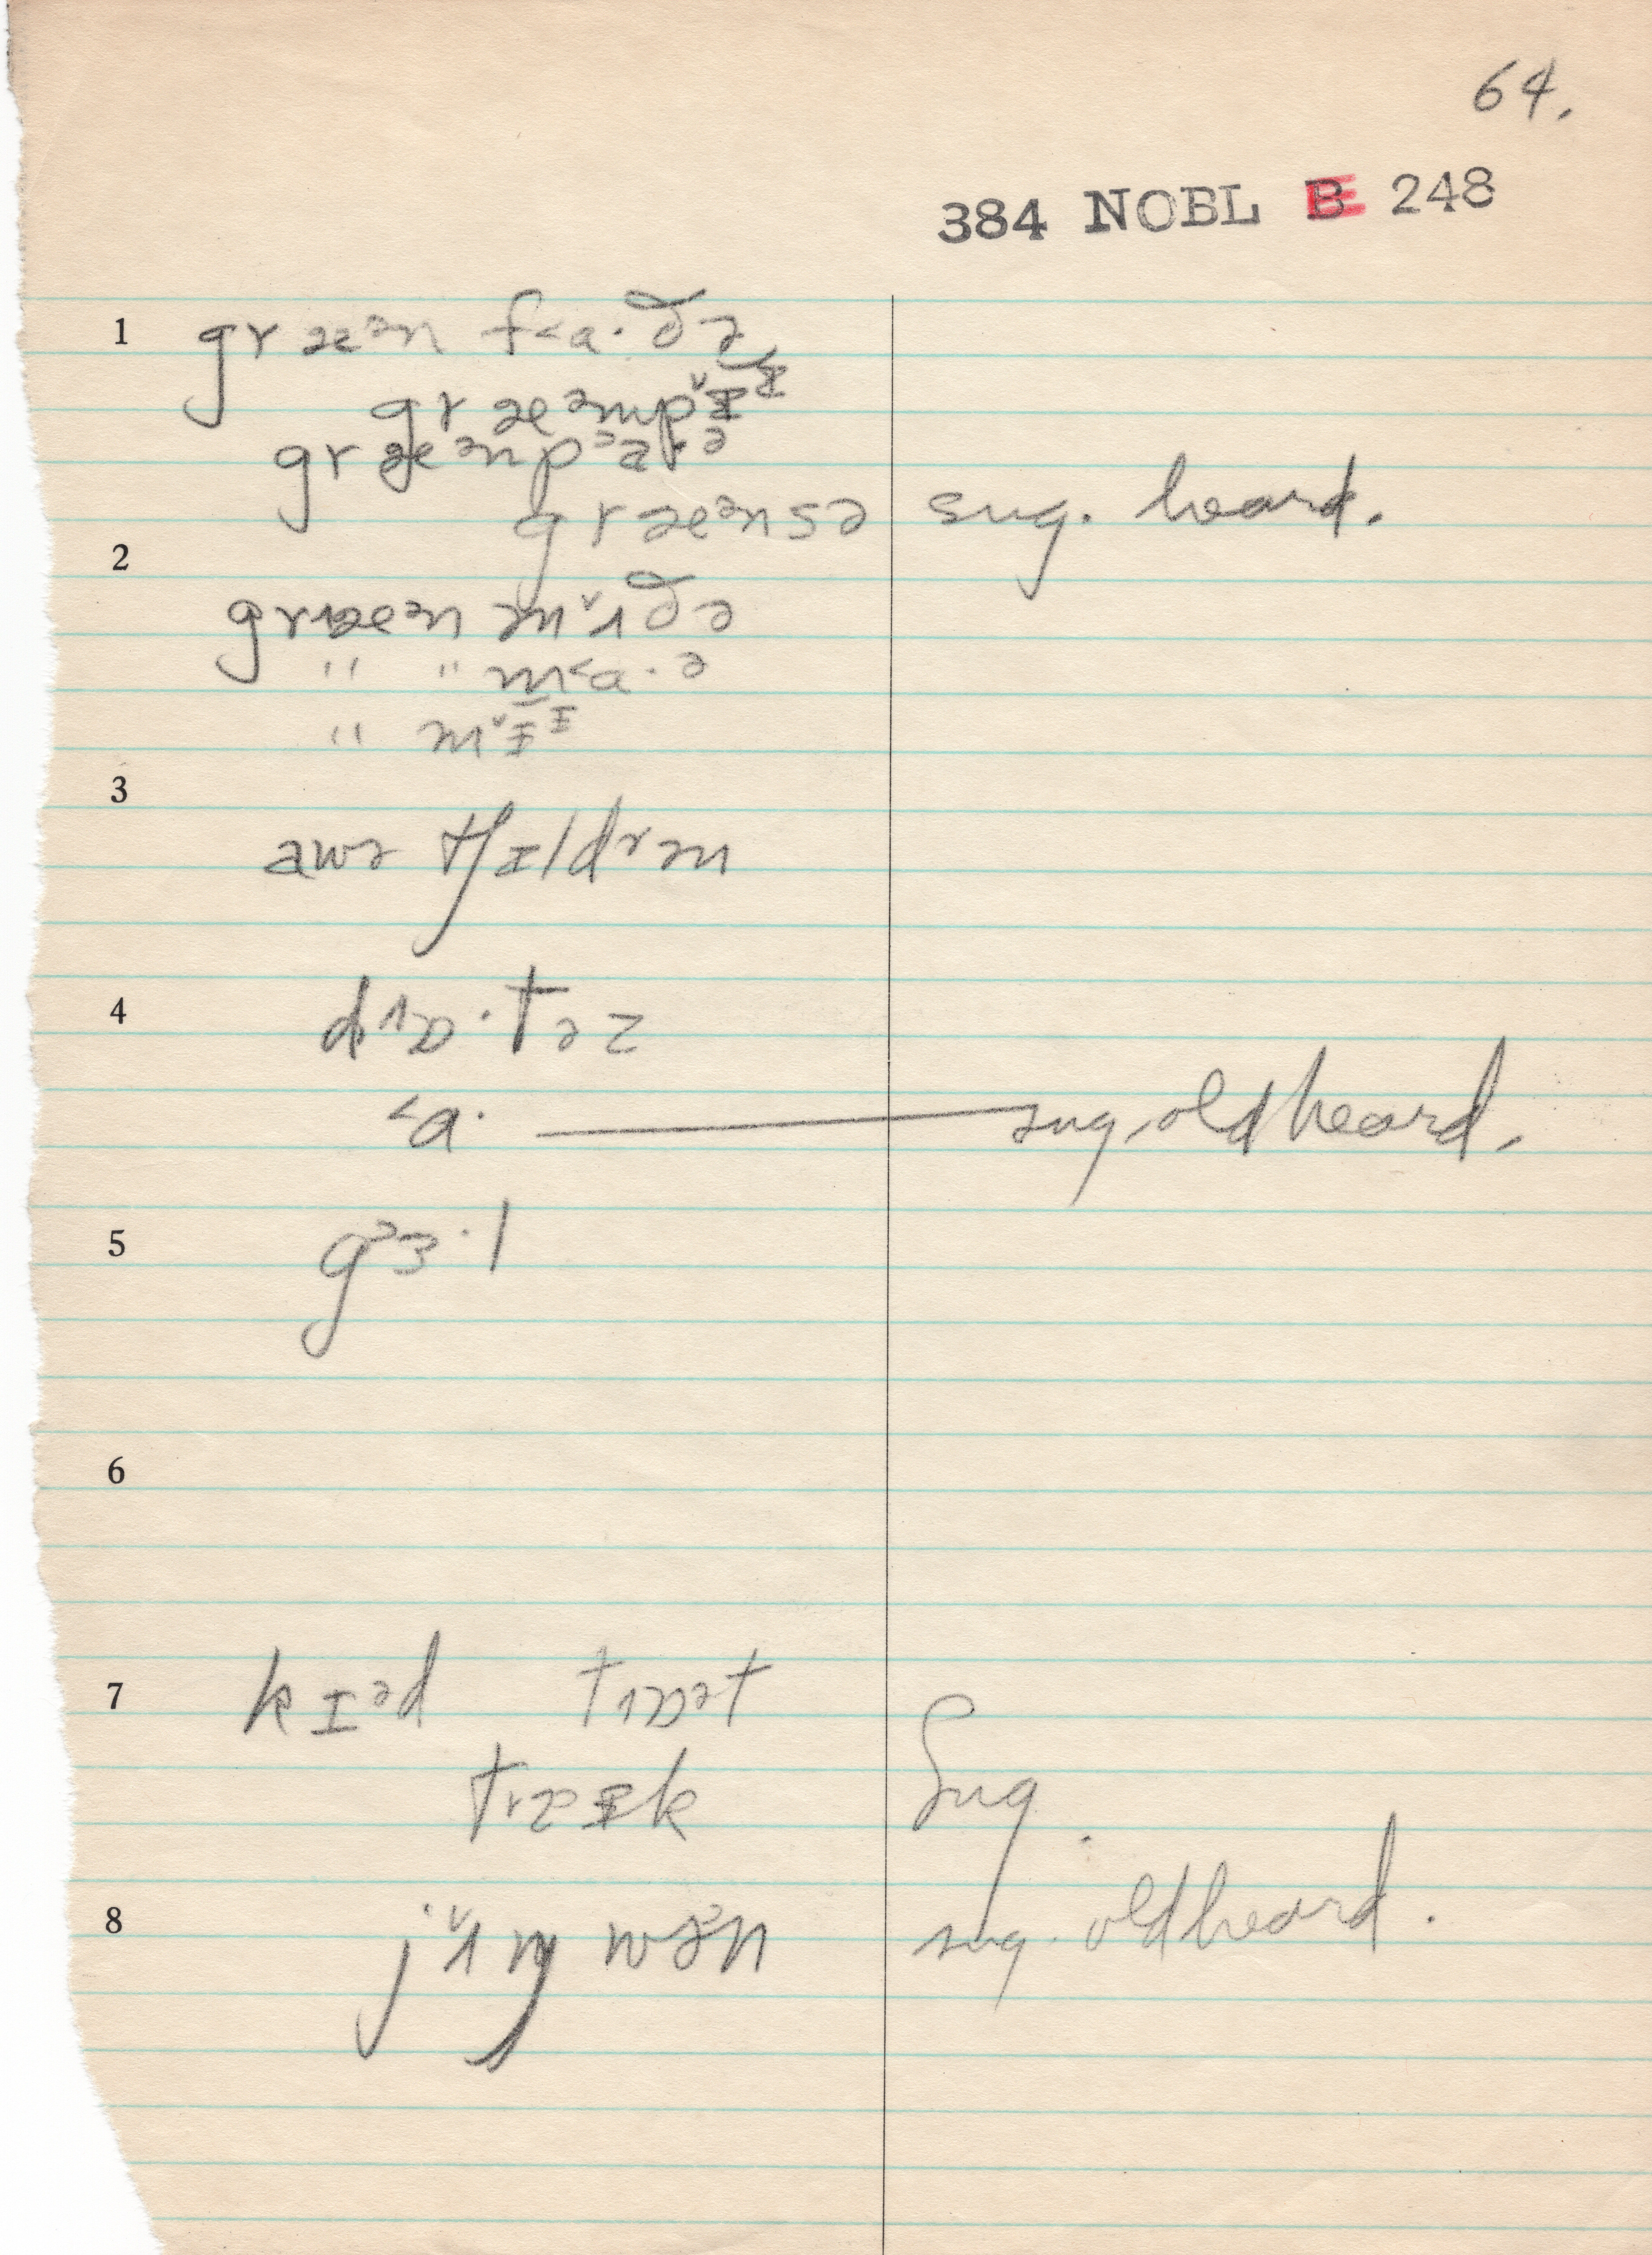 64.
384 NOBL B 248
1 gr æᵊn f˂a·ðə
gr æᵊmp˅ɪᶦ
gr æᵊnpᵓaᵊ
gr æᵊnsə sug. heard.
2
græᵊn m˅ʌðə
" " m˂a·ə
" m˅ɪᶦ
3
awə tʃɪldrən
4 d^ɒ·təz
˂a· — sug. old heard.
5 g˃ɜ·l
6
7 kɪᵊd
Sug.
8 j˅ʌŋ sug. old heard.